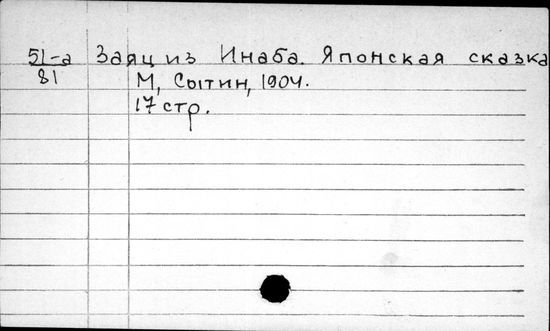 51-а Заяц из Инаба. Японская сказка
81 М, Сытин, 1904.
17 стр.